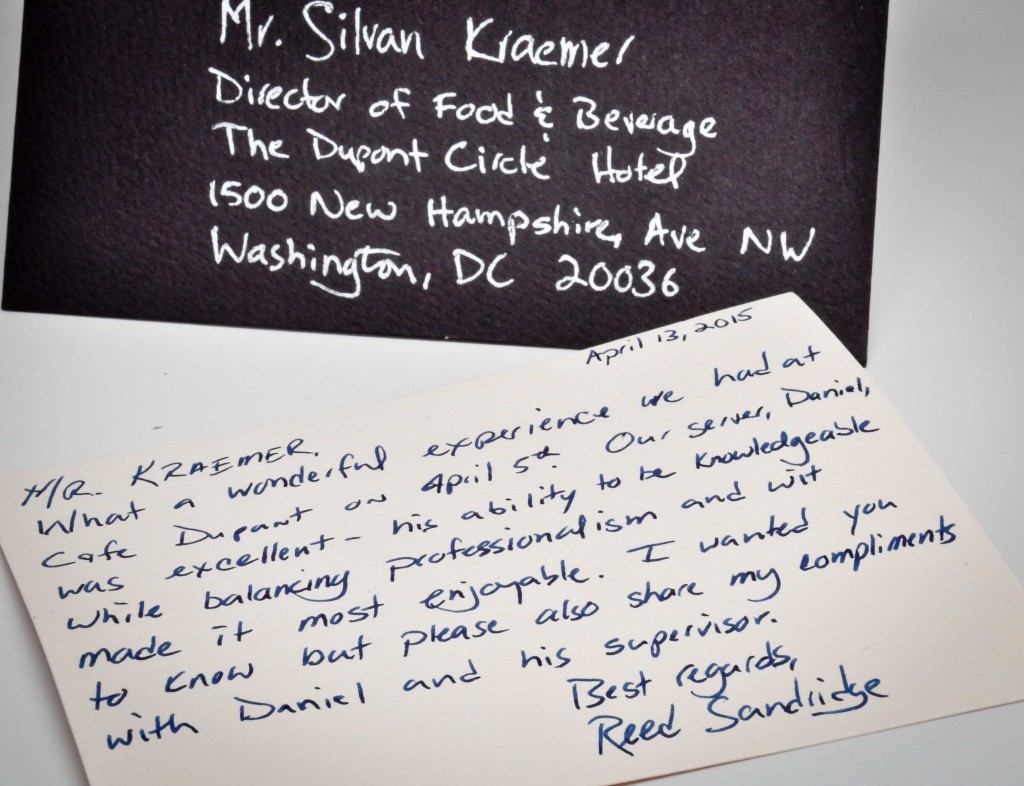 Mr. Silvan Kraemer
Director of Food & Beverage
The Dupont Circle Hotel
1500 New Hampshire, Ave NW
Washington, DC 20036
April 13, 2015
MR. KRAEMER.
What a wonderful experience we had at
Cafe Dupont on April 5th. Our server, Daniel,
was excellent - his ability to be knowledgeable
while balancing professionalism and wit
made it most enjoyable. I wanted you
to know but please also share my compliments
with Daniel and his supervisor.
Best regards,
Reed Sandridge